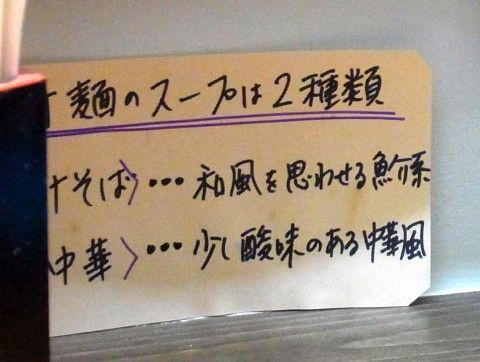 け麺のスープは2種類
けそば〉…和風を思わせる魚介系
中華〉…少し酸味のある中華風